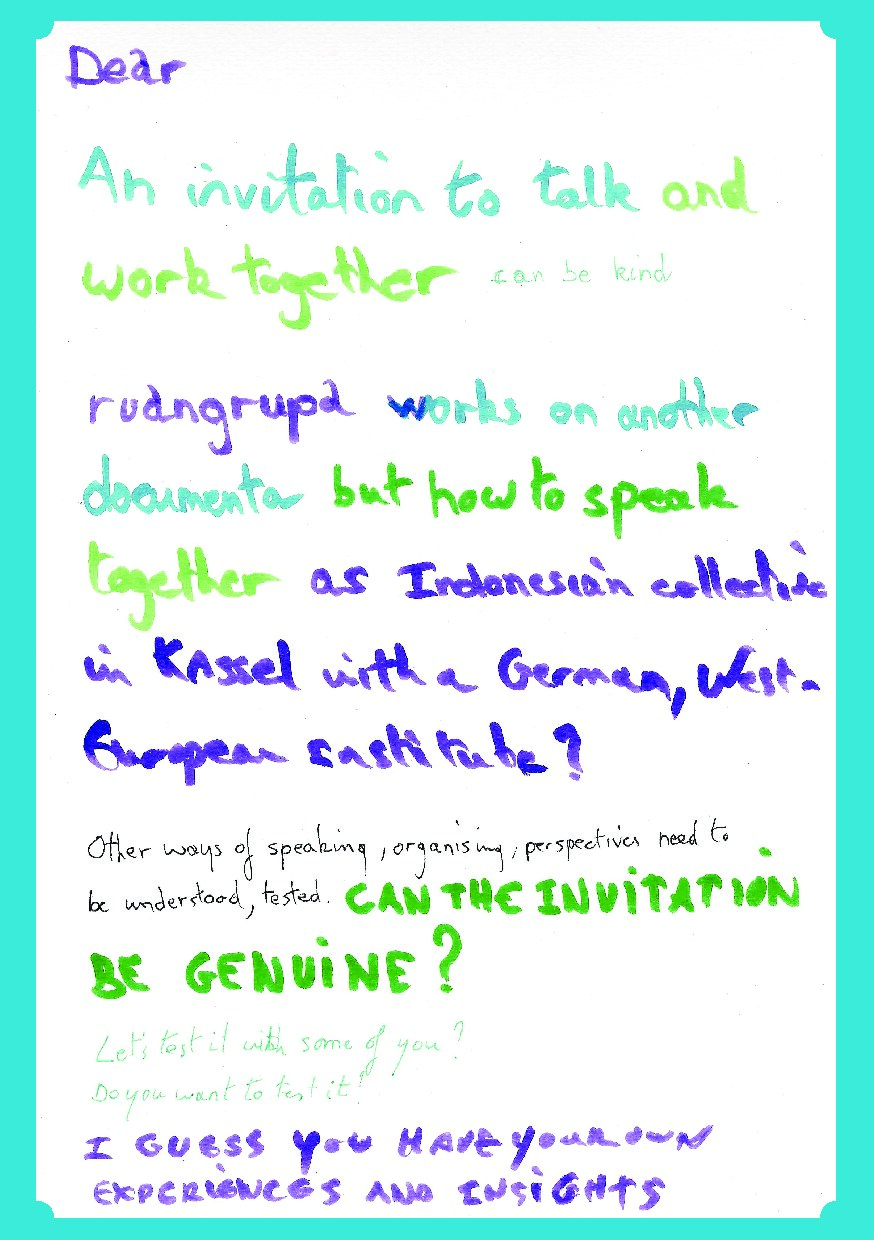 Dear
An invitation to talk and
work together can be kind
ruangrupa works on another
documenta but how to speak
together as Indonesian collective
in KAssel with a German, West-
European institute?
Other ways of speaking, organising, perspectives need to
be understood, tested. CAN THE INVITATION
BE GENUINE?
Let's test it with some of you?
Do you want to test it?
I GUESS YOU HAVE YOUR OWN
EXPERIENCES AND INSIGHTS